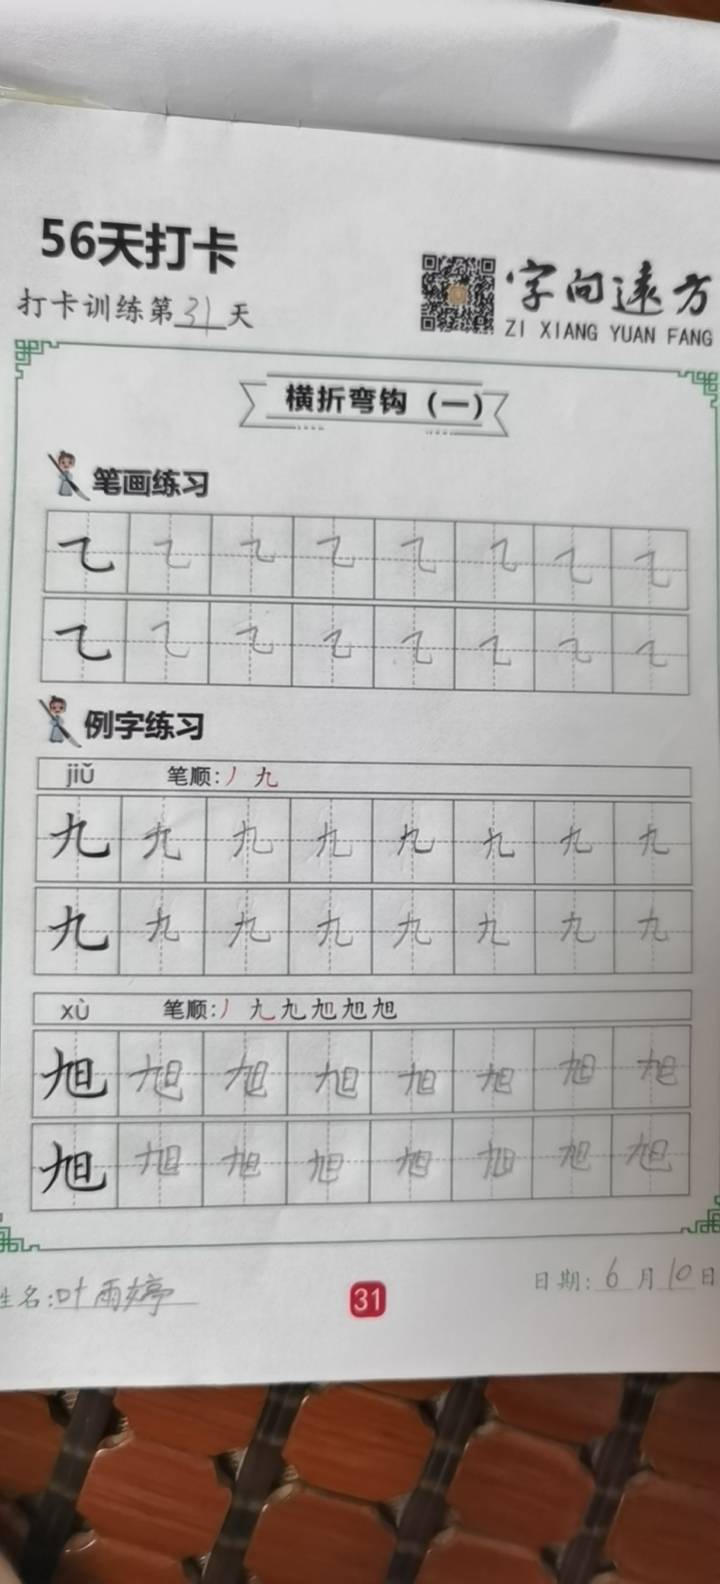 56天打卡
打卡训练第31天
字向遠方
ZI XIANG YUAN FANG
横折弯钩（一）
笔画练习
㇈ ㇈ ㇈ ㇈ ㇈ ㇈ ㇈ ㇈
㇈ ㇈ ㇈ ㇈ ㇈ ㇈ ㇈ ㇈
例字练习
jiǔ 笔顺:丿 九
九 九 九 九 九 九 九 九
九 九 九 九 九 九 九 九
xù 笔顺:丿 九 九 旭 旭 旭
旭 旭 旭 旭 旭 旭 旭 旭
旭 旭 旭 旭 旭 旭 旭 旭
姓名:叶雨婷
31
日期:6月10日